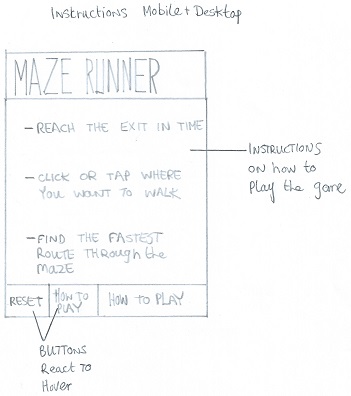 Instructions Mobile + Desktop
MAZE RUNNER
- REACH THE EXIT IN TIME
- CLICK OR TAP WHERE
YOU WANT TO WALK
- FIND THE FASTEST
ROUTE THROUGH the
MAZE
RESET
HOW TO
PLAY
HOW TO PLAY
INSTRUCTIONS
ON how to
Play the game
BUTTONS
React TO
Hover